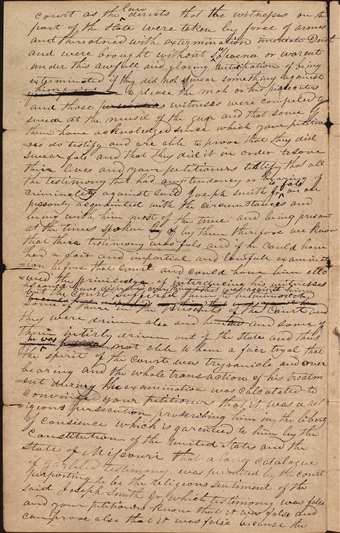 court as the law directs that the witnesses on the
part of the State were taken by force of armes
and threatned with extermination immediate Death
and were brought without Subpoena or warrent
under this awfull and glaring anticipation of being
exterminated if they did not swear something against
him to please the mob or his persecutors
and those witnesses were compeled to
swear at the musil of the gun and that some of
them have acknoledged since which your petitioners
do testify and are able to prove that they did
swear fals and that they did it in order to save
their lives and your petitioners testify that all
the testimony that had any tendency or bearing of
criminality against said Joseph Smith jr is fals we are
personly acquainted with the circumstances and
being with him most of the time and being present
at the times spoken of by them therefore we know
that their testimony was fals and if he could have
had a fair and impartial and lawfull examin
ation before that court and could have been allo
wed the priviledge of introduceing his witnesses
he could have disproved every thing that was against him
but the court suffered them to be intimidated
some in the presents of the Court and
they were driven also and some of
them entirely driven out of the State and thus
he was not able to have a fair tryal that
the spirit of the court was tyranicle and over
bearing and the whole transaction of his treatm
ent during the examination was calculated to
convince your petitioners that it was a reli
gious persecution proscribing him in the liberty
of consience which is garenteed to him by the
Constitution of the United States and the
State of Missouri that a long catalogue
of garbled testimony was permited by the court
purporting to be the religious sentiment of the
said Joseph Smith jr which testimony was false
and your petitioners know that it was false and
can prove also that it was false because the